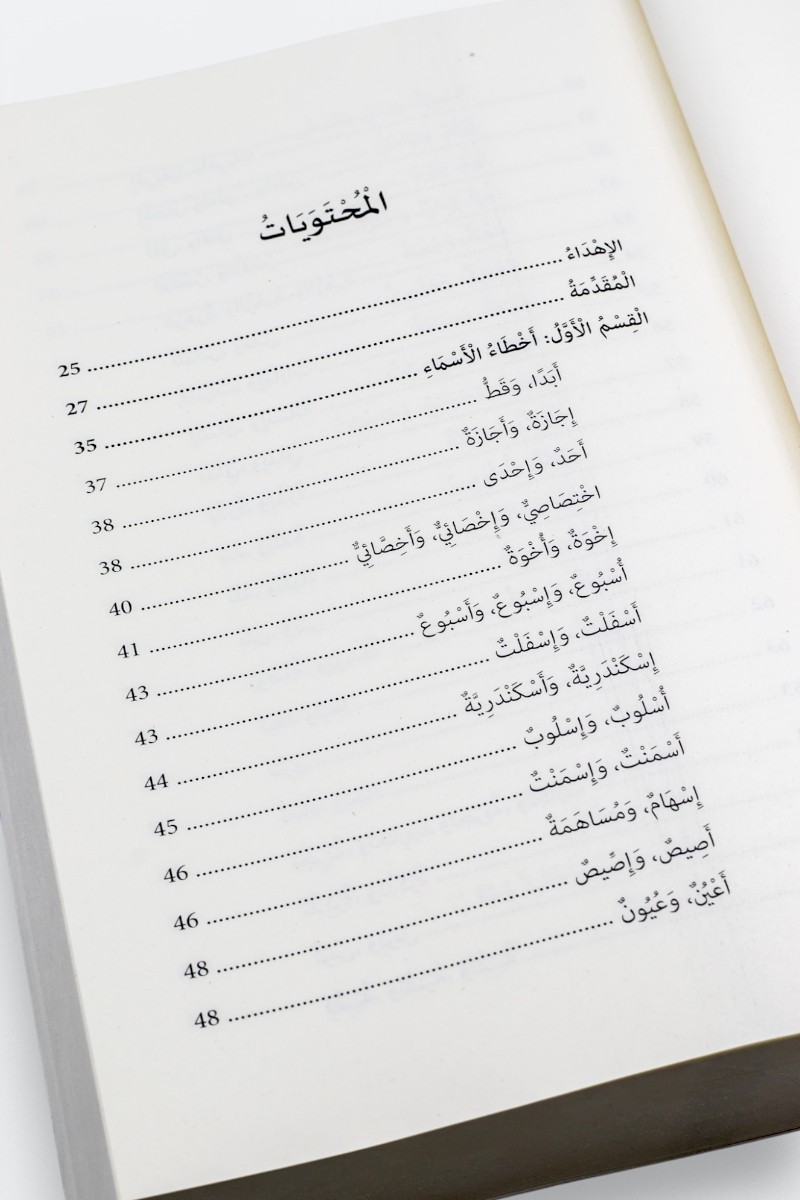 الْمُحْتَوَيَاتُ
الإِهْدَاءُ ........ 25
الْمُقَدِّمَةُ ........ 27
الْقِسْمُ الْأَوَّلُ: أَخْطَاءُ الْأَسْمَاءِ ........ 35
أَبَدًا، وَقَطُّ ........ 37
إِجَازَةٌ، وَأَجَازَةٌ ........ 38
أَحَدٌ، وَإِحْدَى ........ 38
اخْتِصَاصِيٌّ، وَإِخْصَائِيٌّ، وَأَخِصَّائِيٌّ ........ 40
إِخْوَةٌ، وَأُخْوَةٌ ........ 41
أُسْبُوعٌ، وَإِسْبُوعٌ، وَأَسْبُوعٌ ........ 43
أَسْفَلْتٌ، وَإِسْفَلْتٌ ........ 43
إِسْكَنْدَرِيَّةٌ، وَأَسْكَنْدَرِيَّةٌ ........ 44
أُسْلُوبٌ، وَإِسْلُوبٌ ........ 45
أَسْمَنْتٌ، وَإِسْمَنْتٌ ........ 46
إِسْهَامٌ، وَمُسَاهَمَةٌ ........ 46
أَصِيصٌ، وَإِصِّيصٌ ........ 48
أَعْيُنٌ، وَعُيُونٌ ........ 48